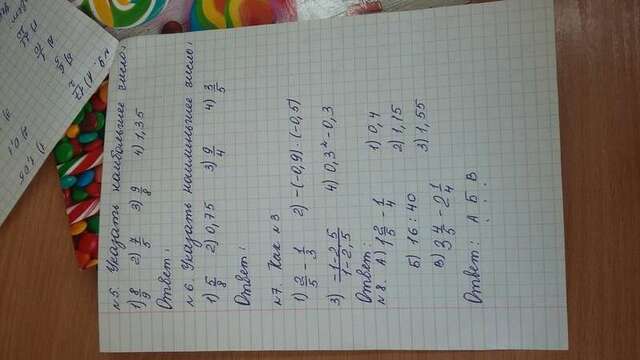 №5. Указать наибольшее число:
1) 8/9 2) 7/5 3) 9/8 4) 1,35
Ответ:
№6. Указать наименьшее число:
1) 5/8 2) 0,75 3) 9/4 4) 3/5
Ответ:
№7. Как №3
1) 2/5 - 1/3 2) -(-0,9)·(-0,5)
3) -1-2,5/1-2,5 4) 0,3² - 0,3
Ответ:
№8. А) 1 2/5 - 1/4 1) 0,4
Б) 16 : 40 2) 1,15
В) 3 4/5 - 2 1/4 3) 1,55
Ответ: А Б В